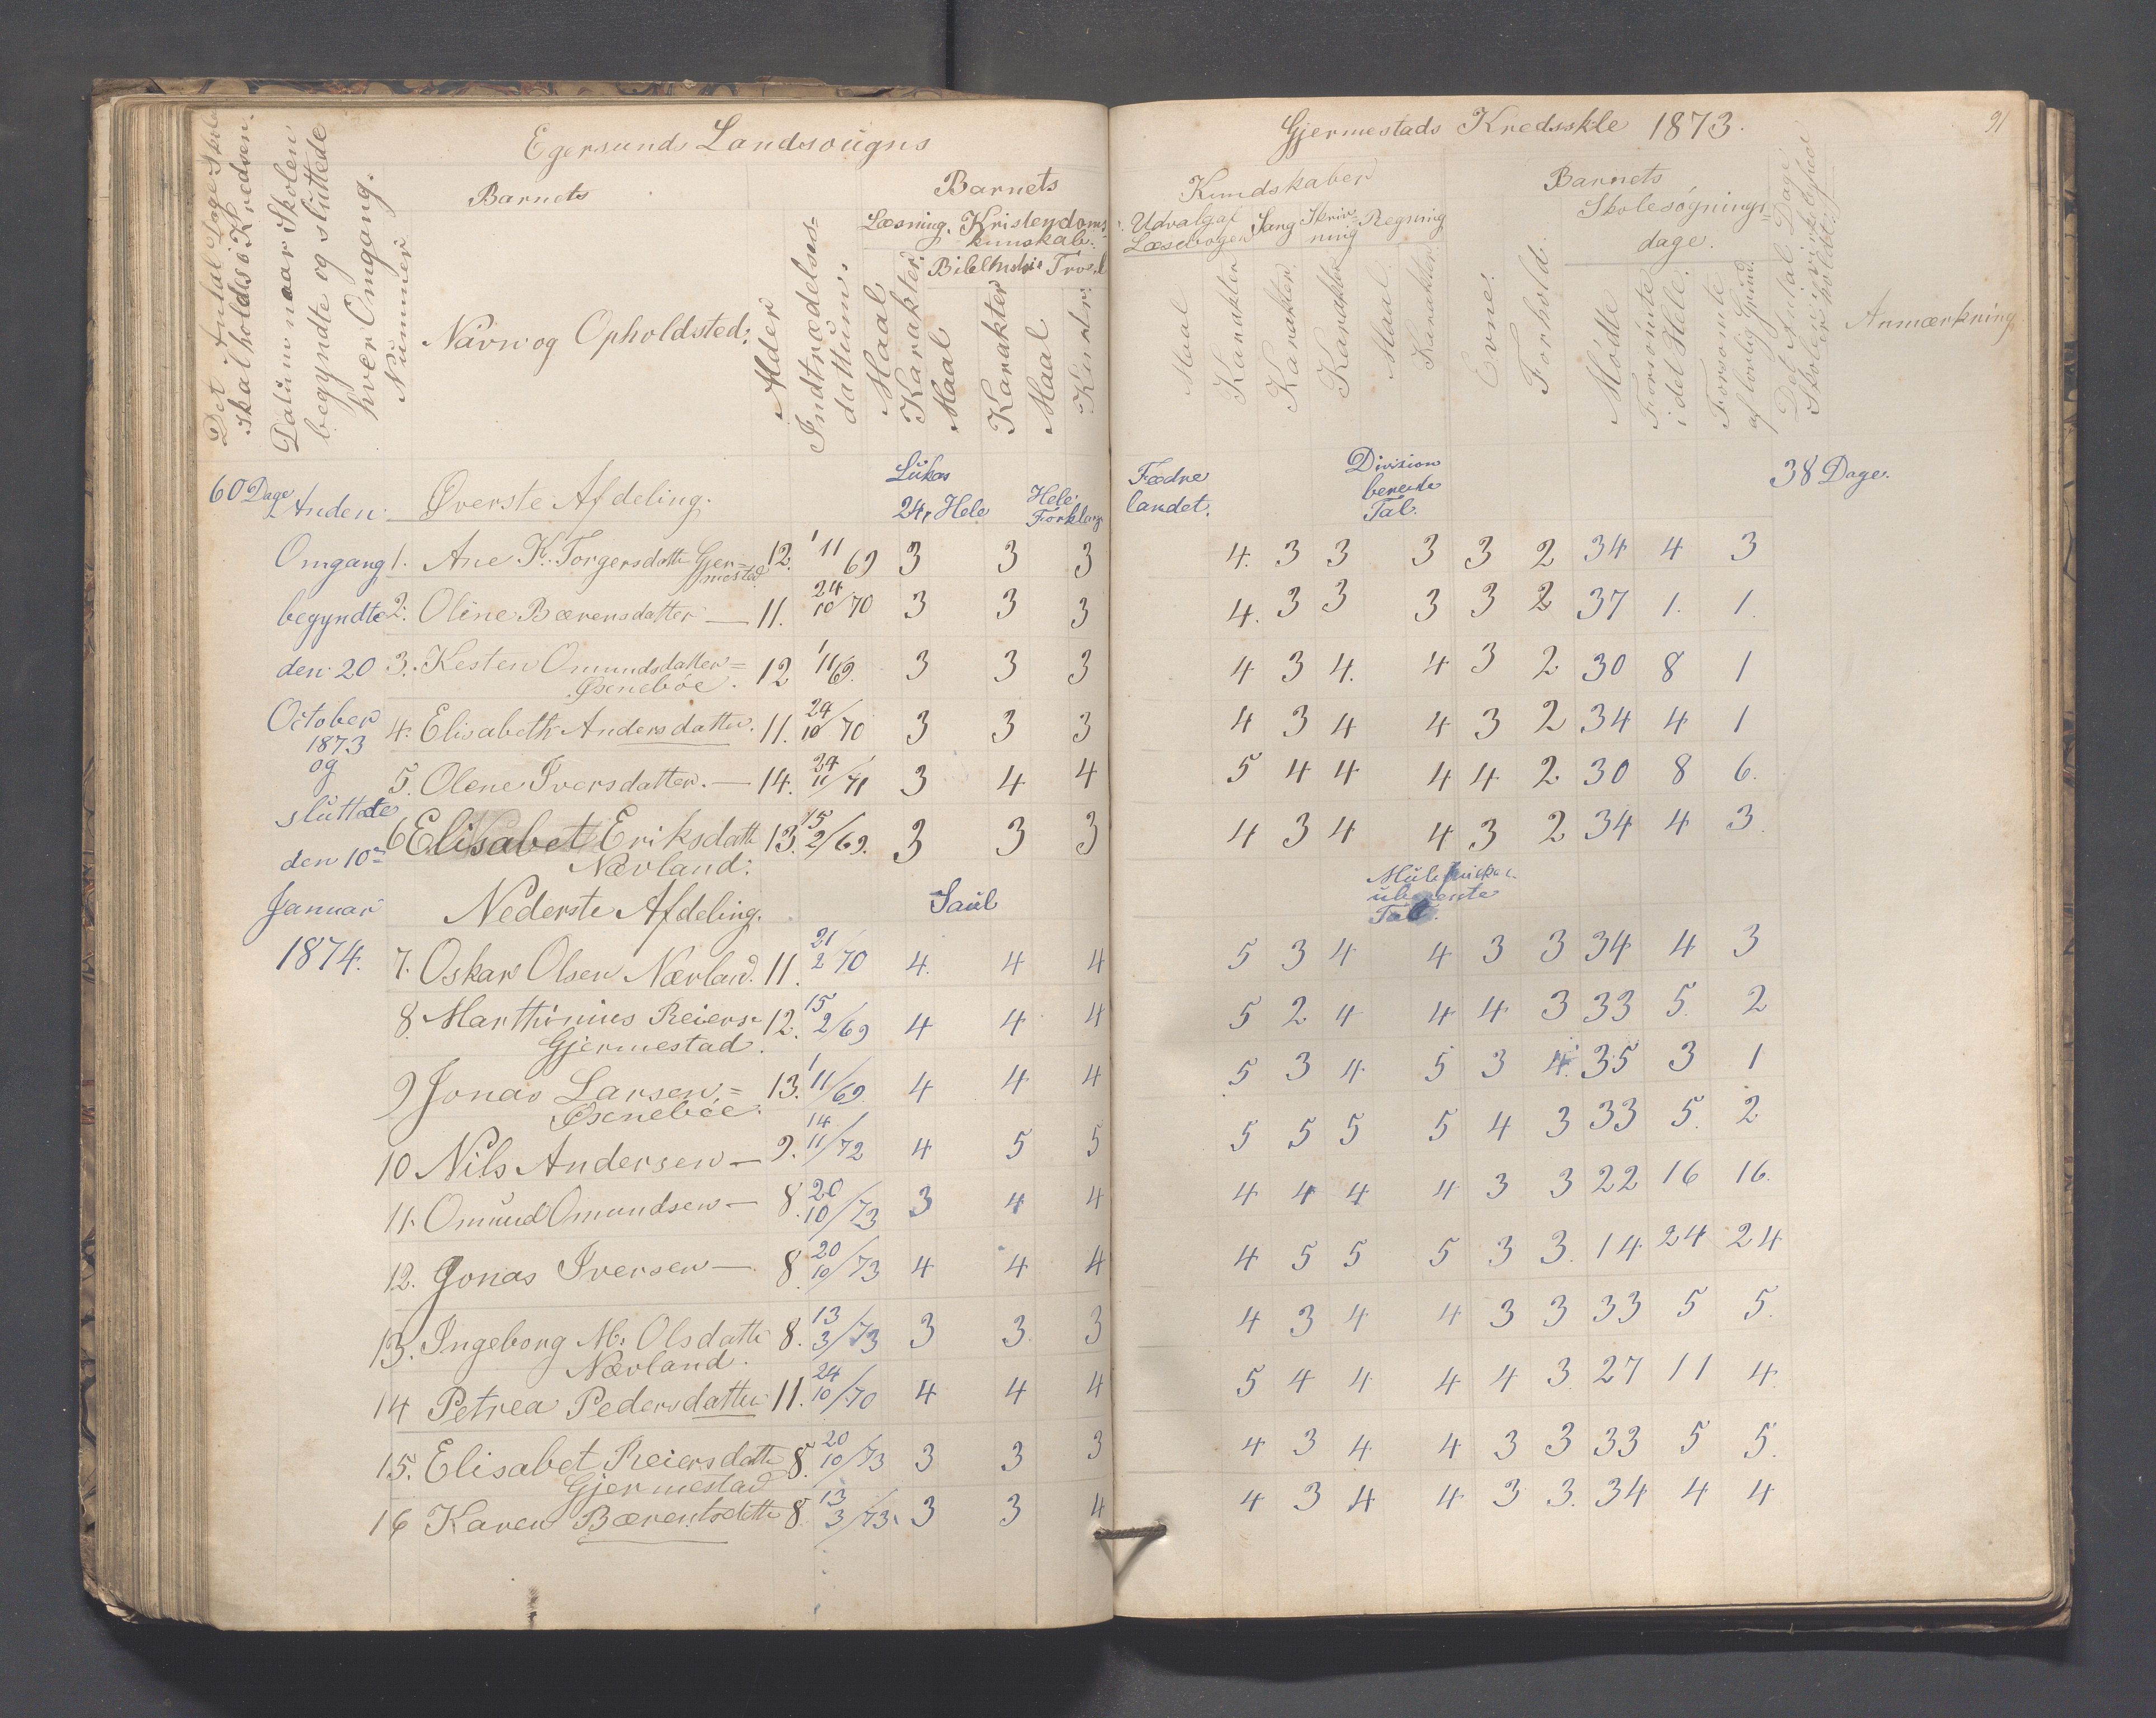 Egersunds Landsougns
Gjermestads Kredsskle 1873.
91
Det Antal Dage Skole
Skal holdes i Kredsen.
Datum naar Skolen
begyndte og sluttede
hver Omgang.
Nummer
Barnets
Navn og Opholdsted:
Alder
Indtrædelses-
dathum.
Barnets
Læsning. Kristendoms-
kunskab.
Bibelhistorie Troesl
Maal
Karakter
Maal
Karakter
Maal
Karakter
Kundskaber
Udvalg af Læsebogen Sang Skriv-ning Regning
Maal
Karakter
Karakter
Karakter
Maal
Karakter
Evne.
Forhold.
Barnets
Skolesøgnings
dage.
Mødte
Forsømte
i det Hele.
Forsømte
af lovlig Grund.
Det Antal Dage
Skolen i virkelighed
er holdt.
Anmærkning
60 Dage
Anden
Omgang
begyndte
den 20
October
1873
og
sluttete
den 10de
Januar
1874.
Øverste Afdeling. Lukas 24, Hele Hele Forklaring Fædrelandet. Division benevnte Tal. 38 Dage.
1. Ane K. Torgersdatte Gjermestad 12. 1/11 69 3 3 3 4. 3 3 3 3 2 34 4 3
2. Oline Bærensdatter — 11. 24/10 70 3 3 3 4. 3 3 3 3 2 37 1. 1.
3. Kesten Omundsdatter = Øsenebøe. 12 1/11 69. 3 3 3 4 3 4. 4 3 2 30 8 1
4. Elisabeth Andersdatter. 11. 24/10 70 3 3 3 4 3 4 4 3 2 34 4 1
5. Olene Iversdatter. — 14. 24/11 71 3 4 4 5 4 4 4 4 2. 30 8 6.
6 Elisabet Eriksdatte Nævland: 13. 15/2 69. 3 3 3 4 3 4 4 3 2 34 4 3.
Nederste Afdeling. Saul
7. Oskar Olsen Nævland. 11. 21/2 70 4. 4 4 5 3 4 4 3 3 34 4 3
8. Marthinius Reiers. Gjermestad. 12. 15/2 69 4 4 4 5 2 4 4 4 3 33 5. 2
9 Jonas Larsen = Øsenebøe. 13. 1/11 69. 4 4 4 5 3 4 5 3 4. 35 3 1
10 Nils Andersen — 9. 14/11 72 4 5 5 5 5 5 5 4 3 33 5. 2
11. Omund Omundsen — 8. 20/10 73 3 4 4 4 4 4 4 3 3 22 16 16.
12. Jonas Iversen — 8. 20/10 73 4 4 4 4 5 5 5 3 3. 14 24 24
13. Ingeborg M. Olsdatte Nævland. 8. 13/3 73 3 3. 3 4 3 4 4 3 3 33 5 5.
14 Petrea Pedersdatter 11. 24/10 70 4 4 4 5 4 4 4 4 3 27 11 4.
15. Elisabet Reiersdatte Gjermestad 8. 20/10 73 3 3 3 4 3 4 4 3 3 33 5 5.
16 Karen Bærentsdatte 8. 13/3 73. 3 3 4 4 3 4 4 3 3. 34 4 4